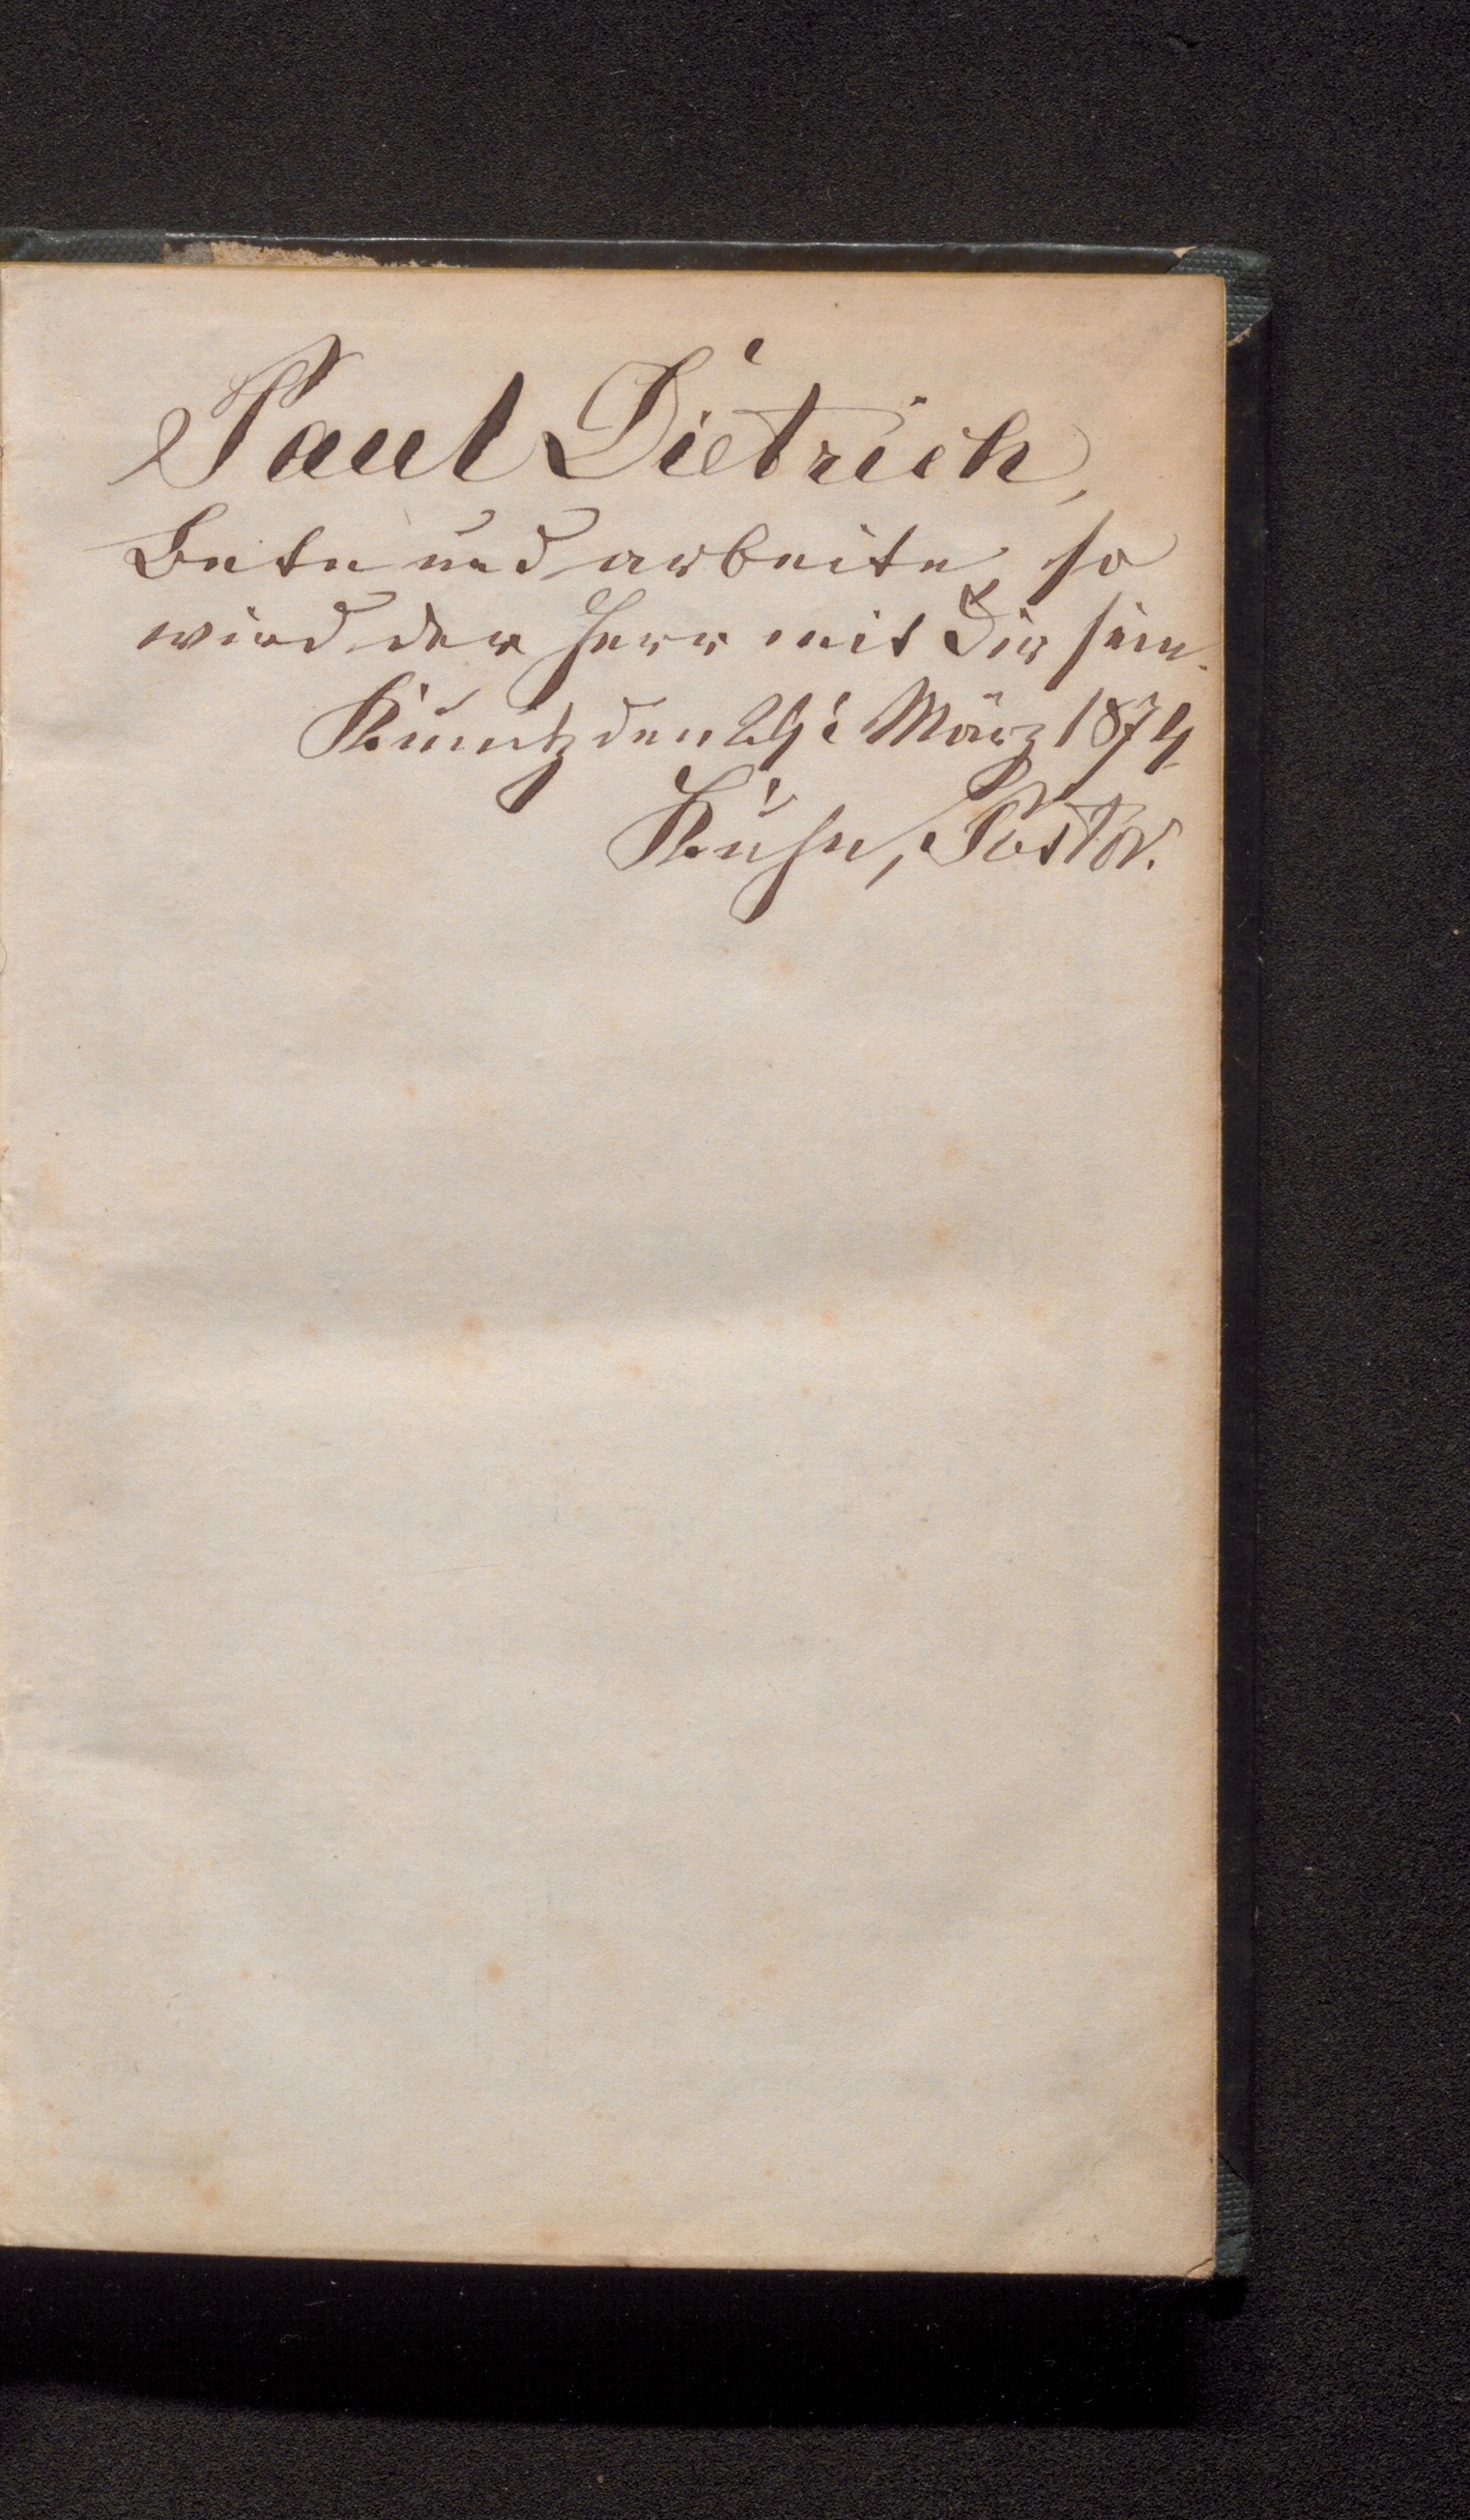 Paul Dietrich,
Bete und arbeite, so
wird der Herr mit Dir sein.
den 29. März 1874
Kühn, Pastor.